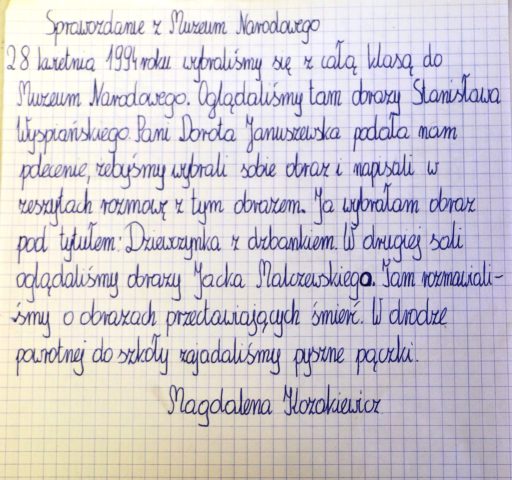 Sprawozdanie z Muzeum Narodowego
28 kwietnia 1994 roku wybraliśmy się z całą klasą do
Muzeum Narodowego. Oglądaliśmy tam obrazy Stanisława
Wyspiańskiego. Pani Dorota Januszewska podała nam
polecenie, żebyśmy wybrali sobie obraz i napisali w
zeszytach rozmowę z tym obrazem. Ja wybrałam obraz
pod tytułem: Dziewczynka z dzbankiem. W drugiej sali
oglądaliśmy obrazy Jacka Malczewskiego. Tam rozmawiali-
-śmy o obrazach przectawiających śmierć. W drodze
powrotnej do szkoły zajadaliśmy pyszne pączki.
Magdalena Kozakiewicz